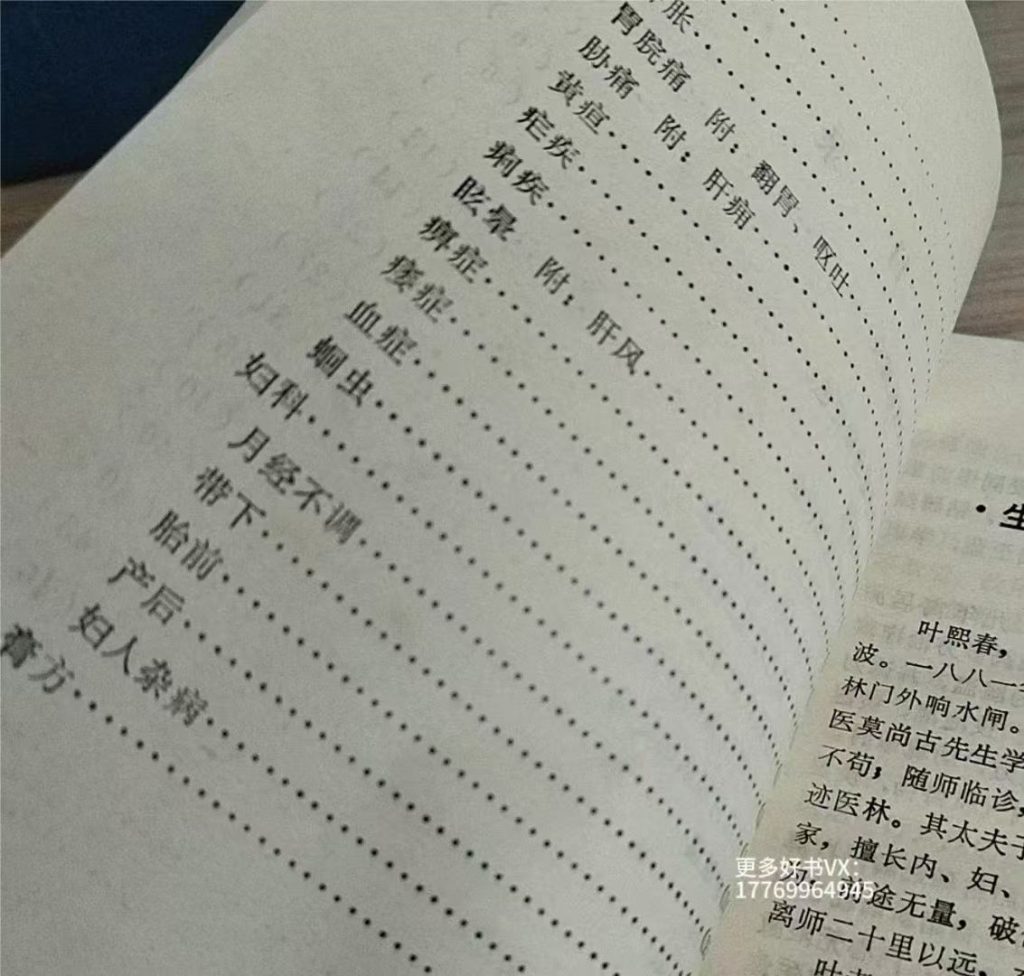 胀
胃脘痛 附：翻胃、呕吐
胁痛 附：肝痈
黄疸
疟疾
痢疾
眩晕 附：肝风
痹症
痿症
血症
蛔虫
妇科
月经不调
带下
胎前
产后
妇人杂病
膏方
·生
叶熙春，
波。一八八一
林门外响水闸。
医莫尚古先生学
不苟；随师临诊，
迹医林。其太夫子
家，擅长内、妇、
前途无量，破
离师二十里以远，
更多好书VX：
17769964945